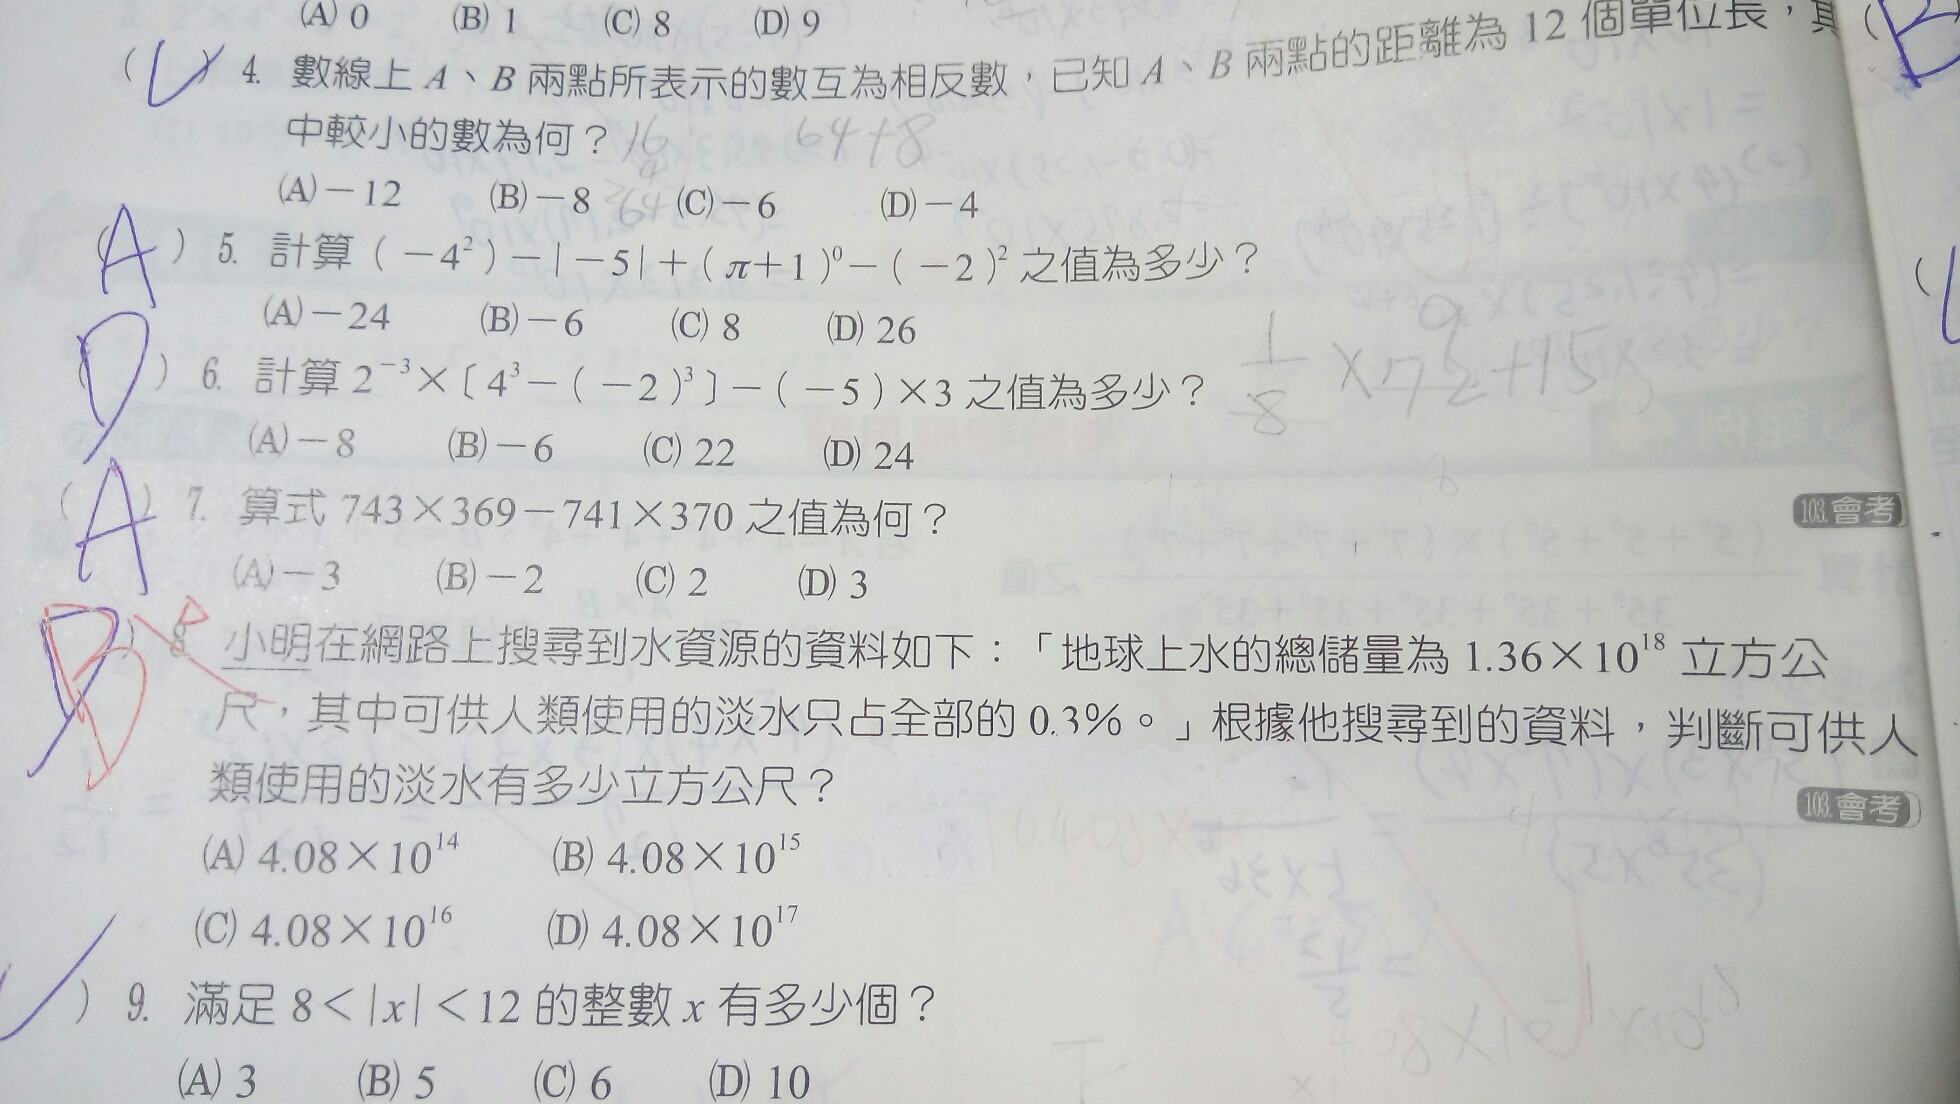 (A) 0 (B) 1 (C) 8 (D) 9
( ) 4. 數線上 A、B 兩點所表示的數互為相反數，已知 A、B 兩點的距離為 12 個單位長，其
中較小的數為何？ 16 64+8
(A)－12 (B)－8 64 (C)－6 (D)－4
(A) 5. 計算（－4²）－|－5|＋（π＋1）⁰－（－2）² 之值為多少？
(A)－24 (B)－6 (C) 8 (D) 26
(D) 6. 計算 2⁻³×〔4³－（－2）³〕－（－5）×3 之值為多少？ 1/8 ×72+15
(A)－8 (B)－6 (C) 22 (D) 24
(A) 7. 算式 743×369－741×370 之值為何？ 103.會考
(A)－3 (B)－2 (C) 2 (D) 3
B 8. 小明在網路上搜尋到水資源的資料如下：「地球上水的總儲量為 1.36×10¹⁸ 立方公
尺，其中可供人類使用的淡水只占全部的 0.3%。」根據他搜尋到的資料，判斷可供人
類使用的淡水有多少立方公尺？ 103.會考
(A) 4.08×10¹⁴ (B) 4.08×10¹⁵
(C) 4.08×10¹⁶ (D) 4.08×10¹⁷
) 9. 滿足 8＜|x|＜12 的整數 x 有多少個？
(A) 3 (B) 5 (C) 6 (D) 10